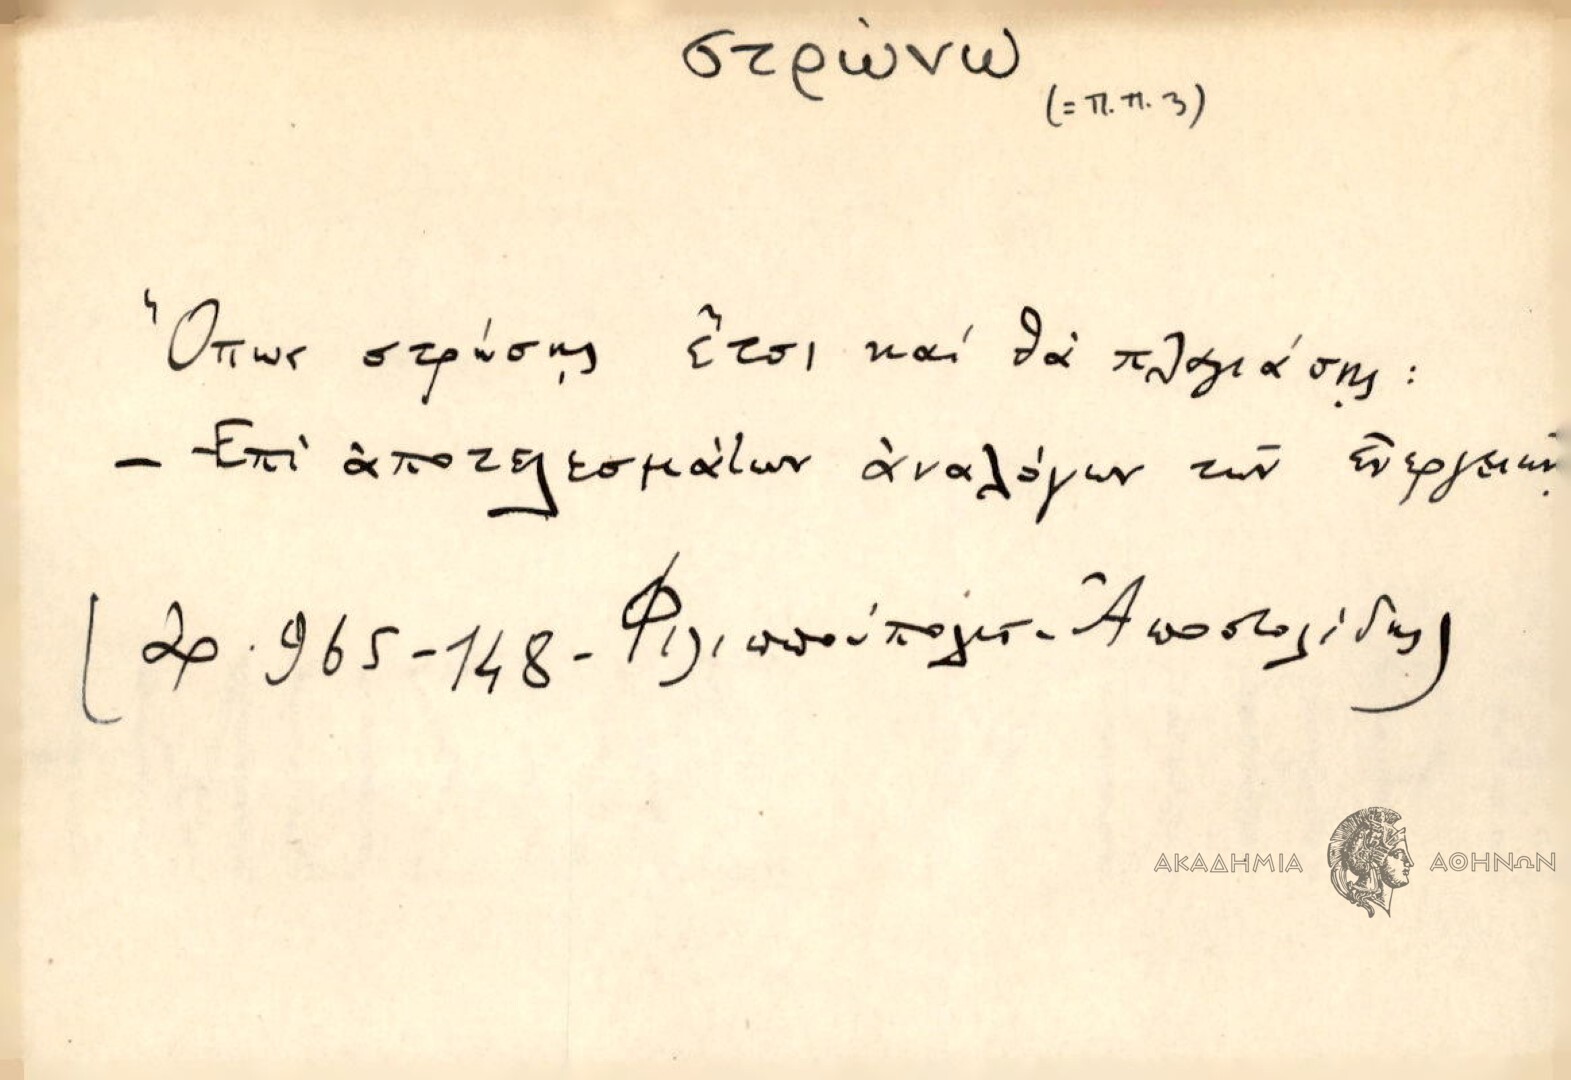 στρώνω
(= π. π. 3)
Ὅπως στρώσῃς ἔτσι καί θά πλαγιάσῃς:
- Ἐπὶ ἀποτελεσμάτων ἀναλόγων τῶν ἐνεργειῶν
(ἀρ. 965-148- Φιλιππούπολις- Ἀποστολίδης)
ΑΚΑΔΗΜΙΑ ΑΘΗΝΩΝ